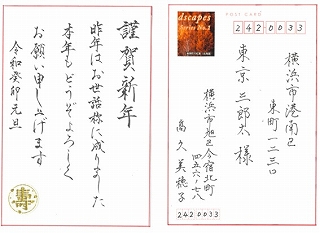 謹賀新年
昨年はお世話様に成りました
本年もどうぞよろしく
お願い申し上げます
令和癸卯元旦
寿
dscapes
Series No.3
POST CARD
2420033
横浜市港南区
東町一二三口
東京三郎太様
横浜市旭区今宿北町
四五六ー七八
高久美穂子
2420033